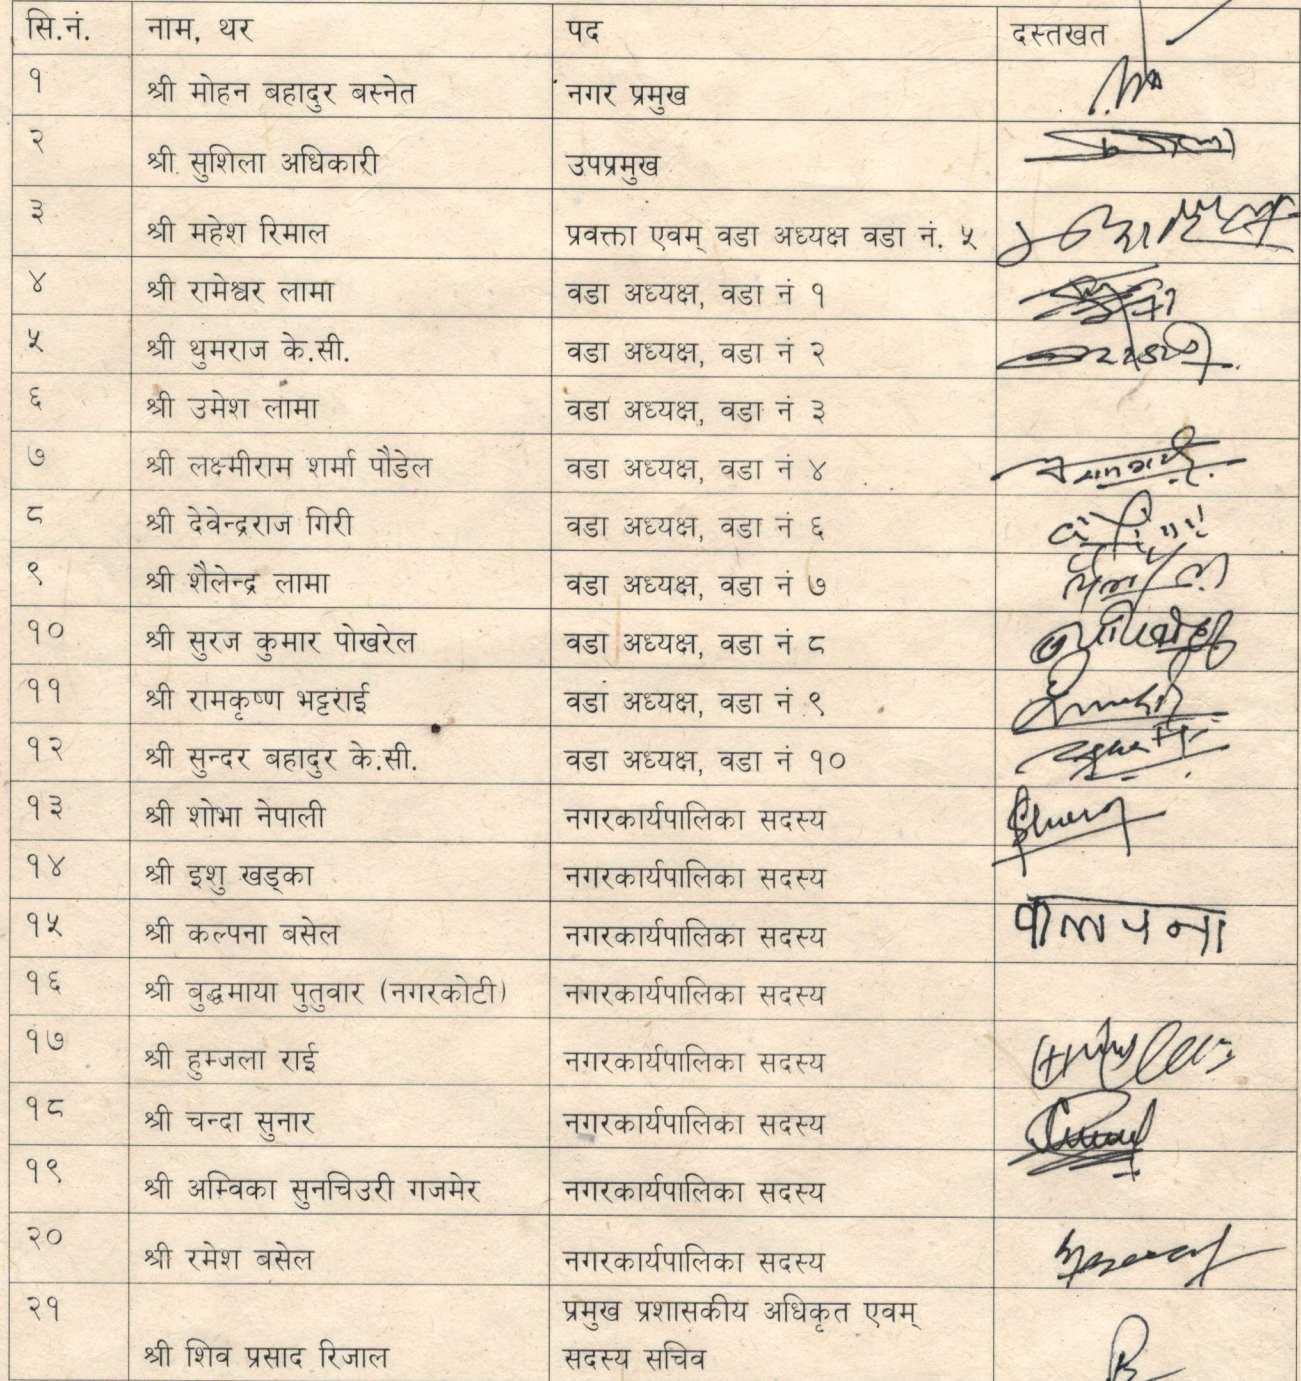 सि.नं. नाम, थर पद दस्तखत
१ श्री मोहन बहादुर बस्नेत नगर प्रमुख
२ श्री सुशिला अधिकारी उपप्रमुख
३ श्री महेश रिमाल प्रवक्ता एवम् वडा अध्यक्ष वडा नं. ५
४ श्री रामेश्वर लामा वडा अध्यक्ष, वडा नं १
५ श्री थुमराज के.सी. वडा अध्यक्ष, वडा नं २
६ श्री उमेश लामा वडा अध्यक्ष, वडा नं ३
७ श्री लक्ष्मीराम शर्मा पौडेल वडा अध्यक्ष, वडा नं ४
८ श्री देवेन्द्रराज गिरी वडा अध्यक्ष, वडा नं ६
९ श्री शैलेन्द्र लामा वडा अध्यक्ष, वडा नं ७
१० श्री सुरज कुमार पोखरेल वडा अध्यक्ष, वडा नं ८
११ श्री रामकृष्ण भट्टराई वडा अध्यक्ष, वडा नं ९
१२ श्री सुन्दर बहादुर के.सी. वडा अध्यक्ष, वडा नं १०
१३ श्री शोभा नेपाली नगरकार्यपालिका सदस्य
१४ श्री इशु खड्का नगरकार्यपालिका सदस्य
१५ श्री कल्पना बसेल नगरकार्यपालिका सदस्य कल्पना
१६ श्री बुद्धमाया पुतुवार (नगरकोटी) नगरकार्यपालिका सदस्य
१७ श्री हुम्जला राई नगरकार्यपालिका सदस्य
१८ श्री चन्दा सुनार नगरकार्यपालिका सदस्य
१९ श्री अम्विका सुनचिउरी गजमेर नगरकार्यपालिका सदस्य
२० श्री रमेश बसेल नगरकार्यपालिका सदस्य
२१ प्रमुख प्रशासकीय अधिकृत एवम्
श्री शिव प्रसाद रिजाल सदस्य सचिव